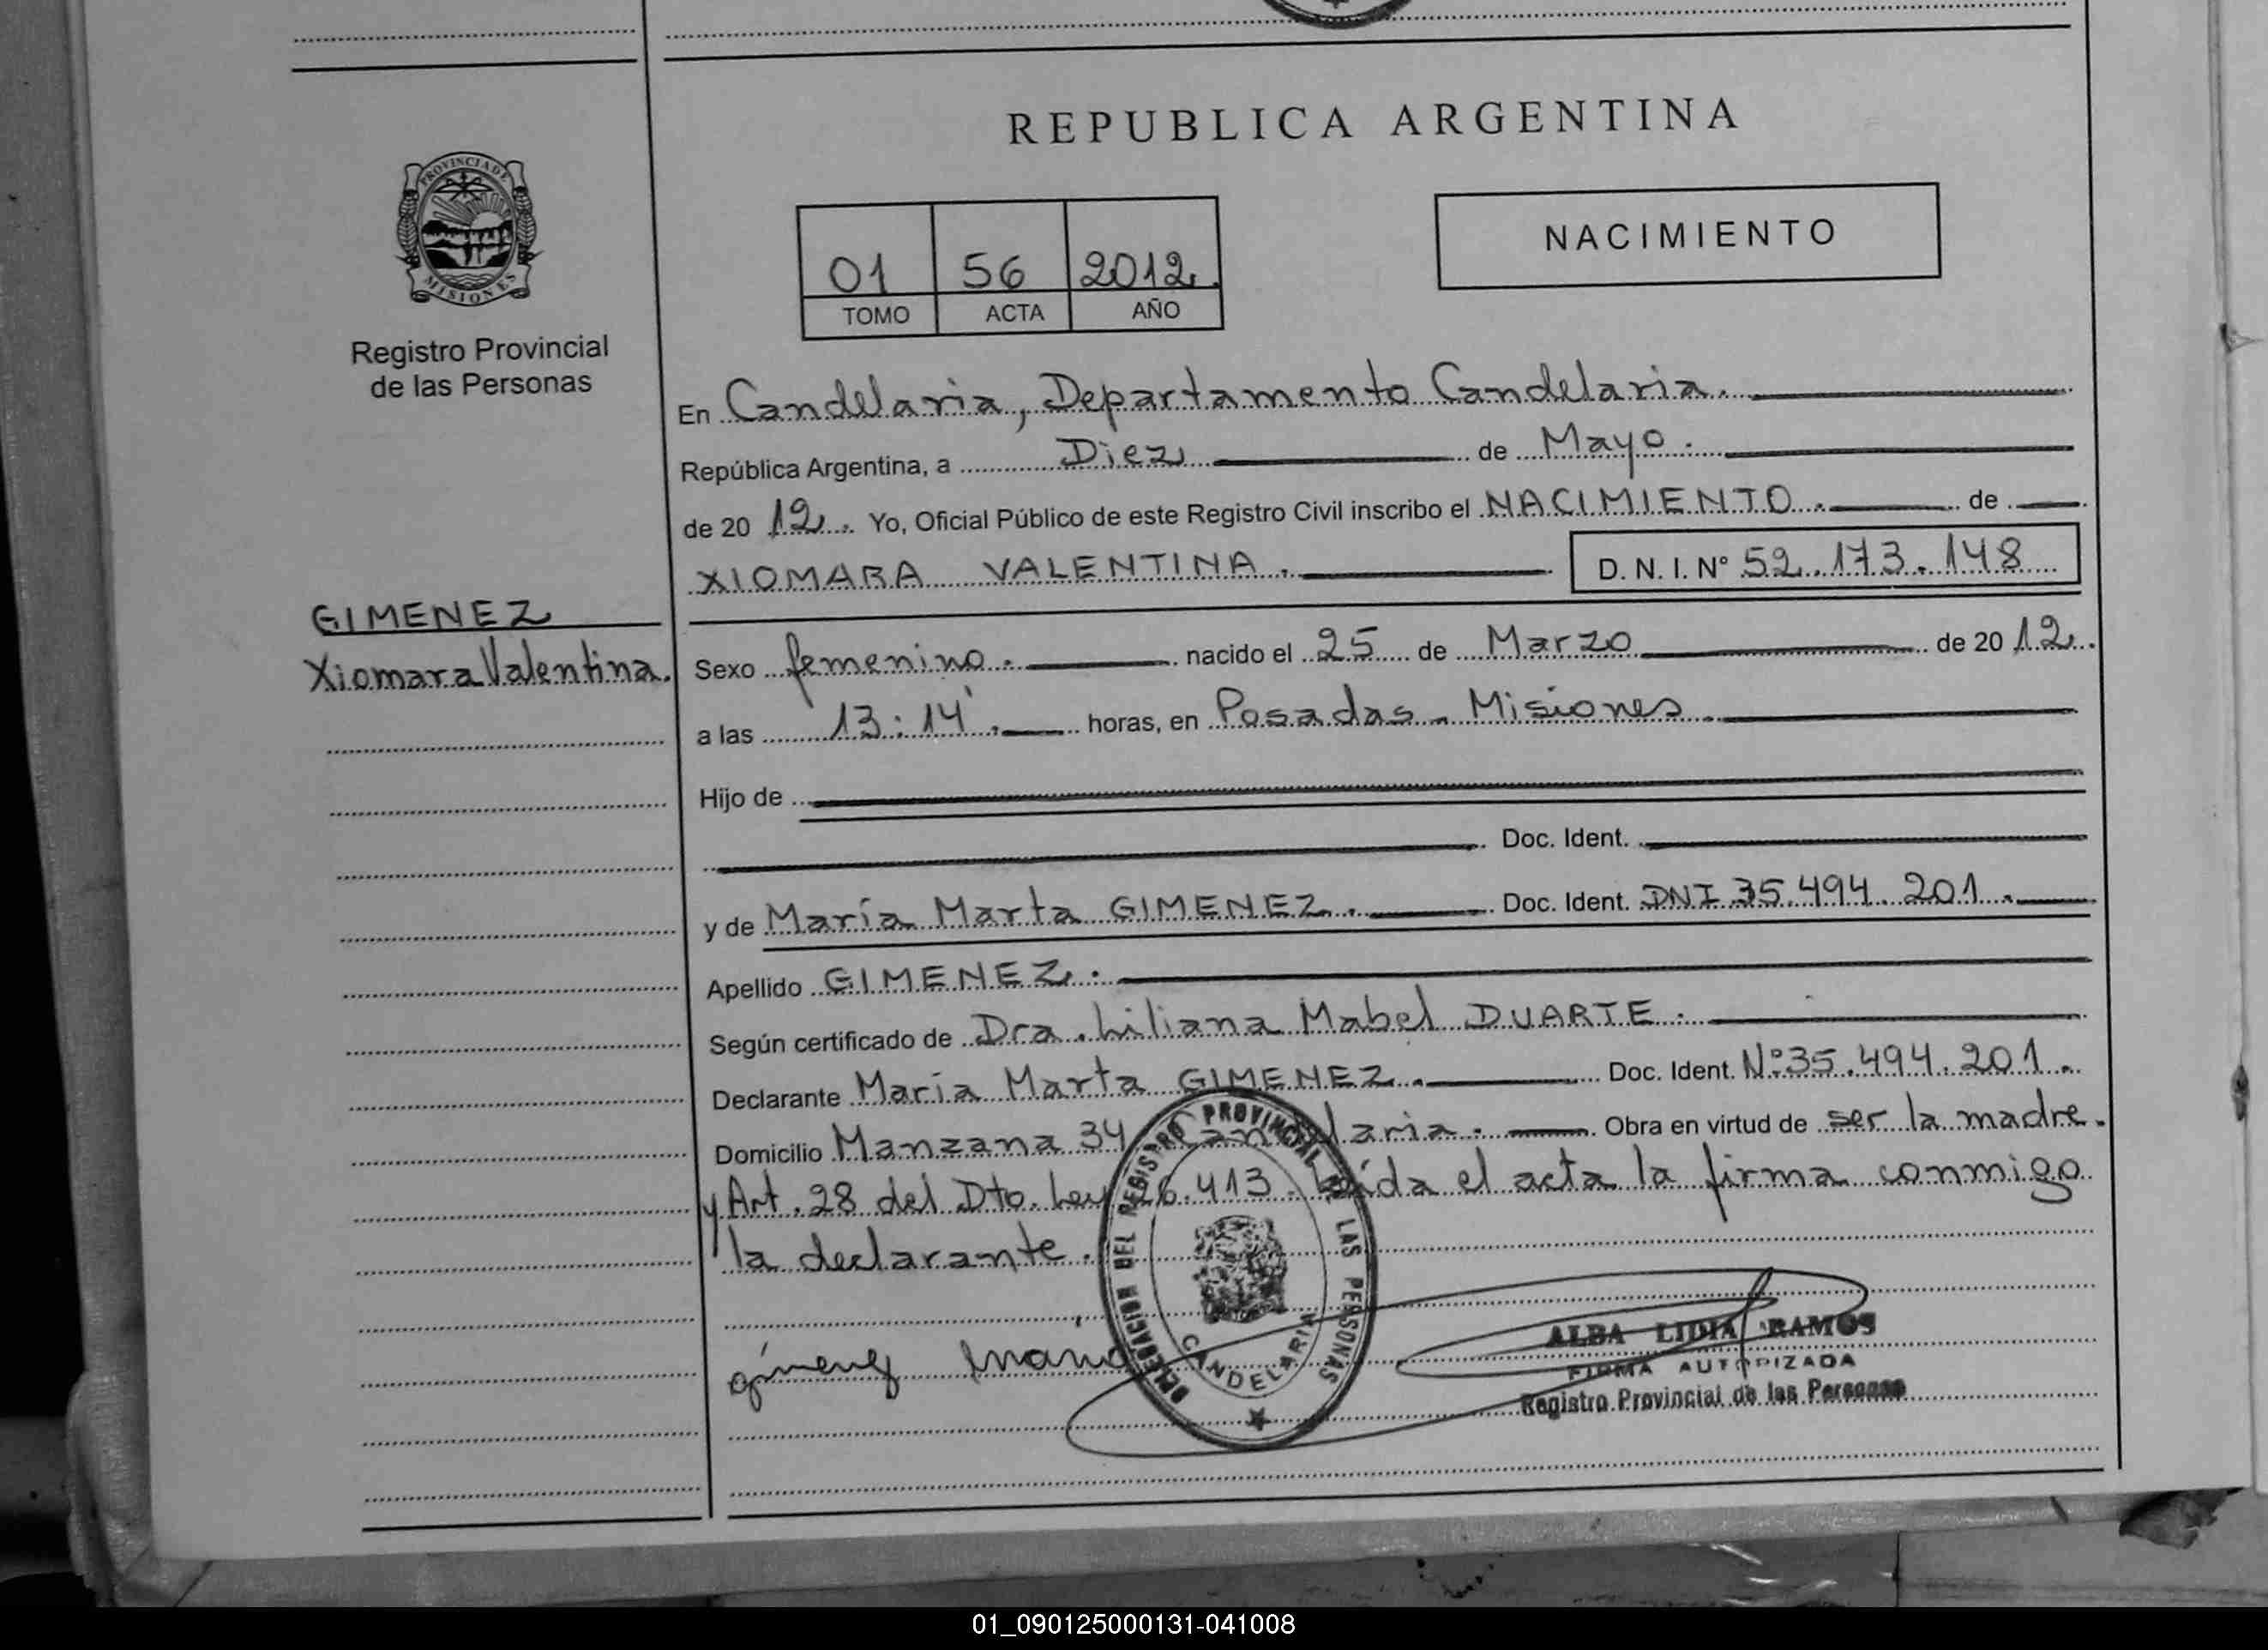 REPUBLICA ARGENTINA
PROVINCIA DE
MISIONES
Registro Provincial
de las Personas
NACIMIENTO
01 56 2012.
TOMO ACTA AÑO
En Candelaria, Departamento Candelaria.
República Argentina, a Diez de Mayo.
de 20 12. Yo, Oficial Público de este Registro Civil inscribo el NACIMIENTO. de
XIOMARA VALENTINA. D. N. I. N° 52.173.148
GIMENEZ
Xiomara Valentina.
Sexo femenino. nacido el 25 de Marzo de 20 12.
a las 13:14'. horas, en Posadas - Misiones.
Hijo de
Doc. Ident.
y de María Marta GIMENEZ. Doc. Ident. DNI 35.494.201.
Apellido GIMENEZ.
Según certificado de Dra. Liliana Mabel DUARTE.
Declarante María Marta GIMENEZ. Doc. Ident. N° 35.494.201.
Domicilio Manzana 34 Candelaria. Obra en virtud de ser la madre.
y Art. 28 del Dto. Ley 26.413. Leída el acta la firma conmigo
la declarante.
DELEGACION DEL REGISTRO PROVINCIAL DE LAS PERSONAS
CANDELARIA
gimenez Maria
ALBA LIDIA RAMOS
FIRMA AUTORIZADA
Registro Provincial de las Personas
01_090125000131-041008